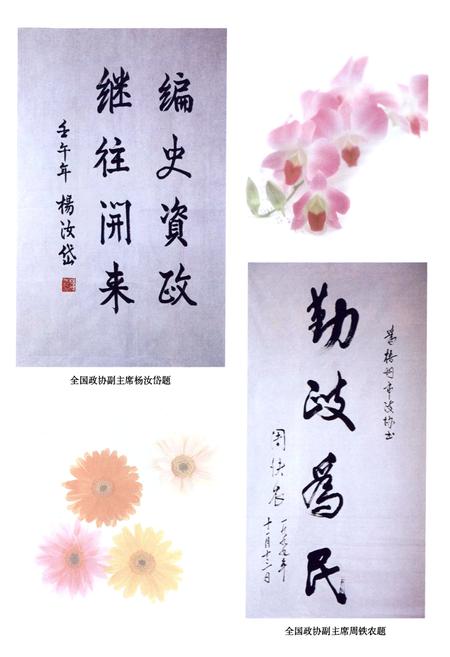 编史資政
继往開来
壬午年 楊汝岱
全国政协副主席杨汝岱题
勤政爲民
周铁农
一九九九年
十一月十二日
全国政协副主席周铁农题